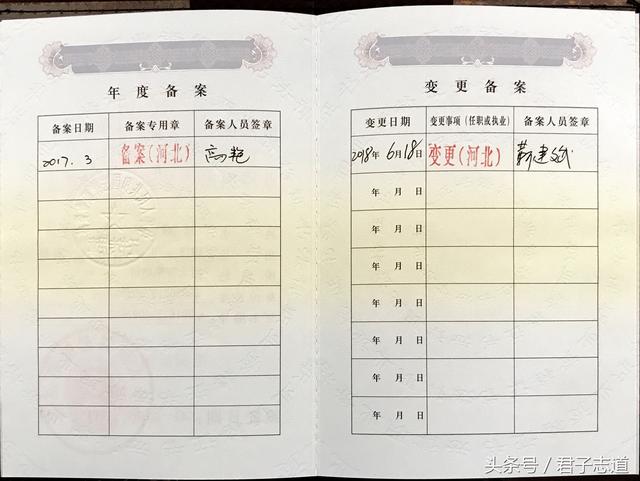 年度备案
备案日期 备案专用章 备案人员签章
2017.3 备案(河北) 高艳
变更备案
变更日期 变更事项(任职或执业) 备案人员签章
2018年6月18日 变更(河北)
年 月 日
年 月 日
年 月 日
年 月 日
年 月 日
年 月 日
年 月 日
头条号/君子志道